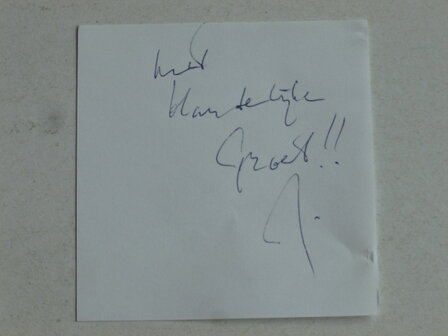 met
klantelijke
Groet!!
J.